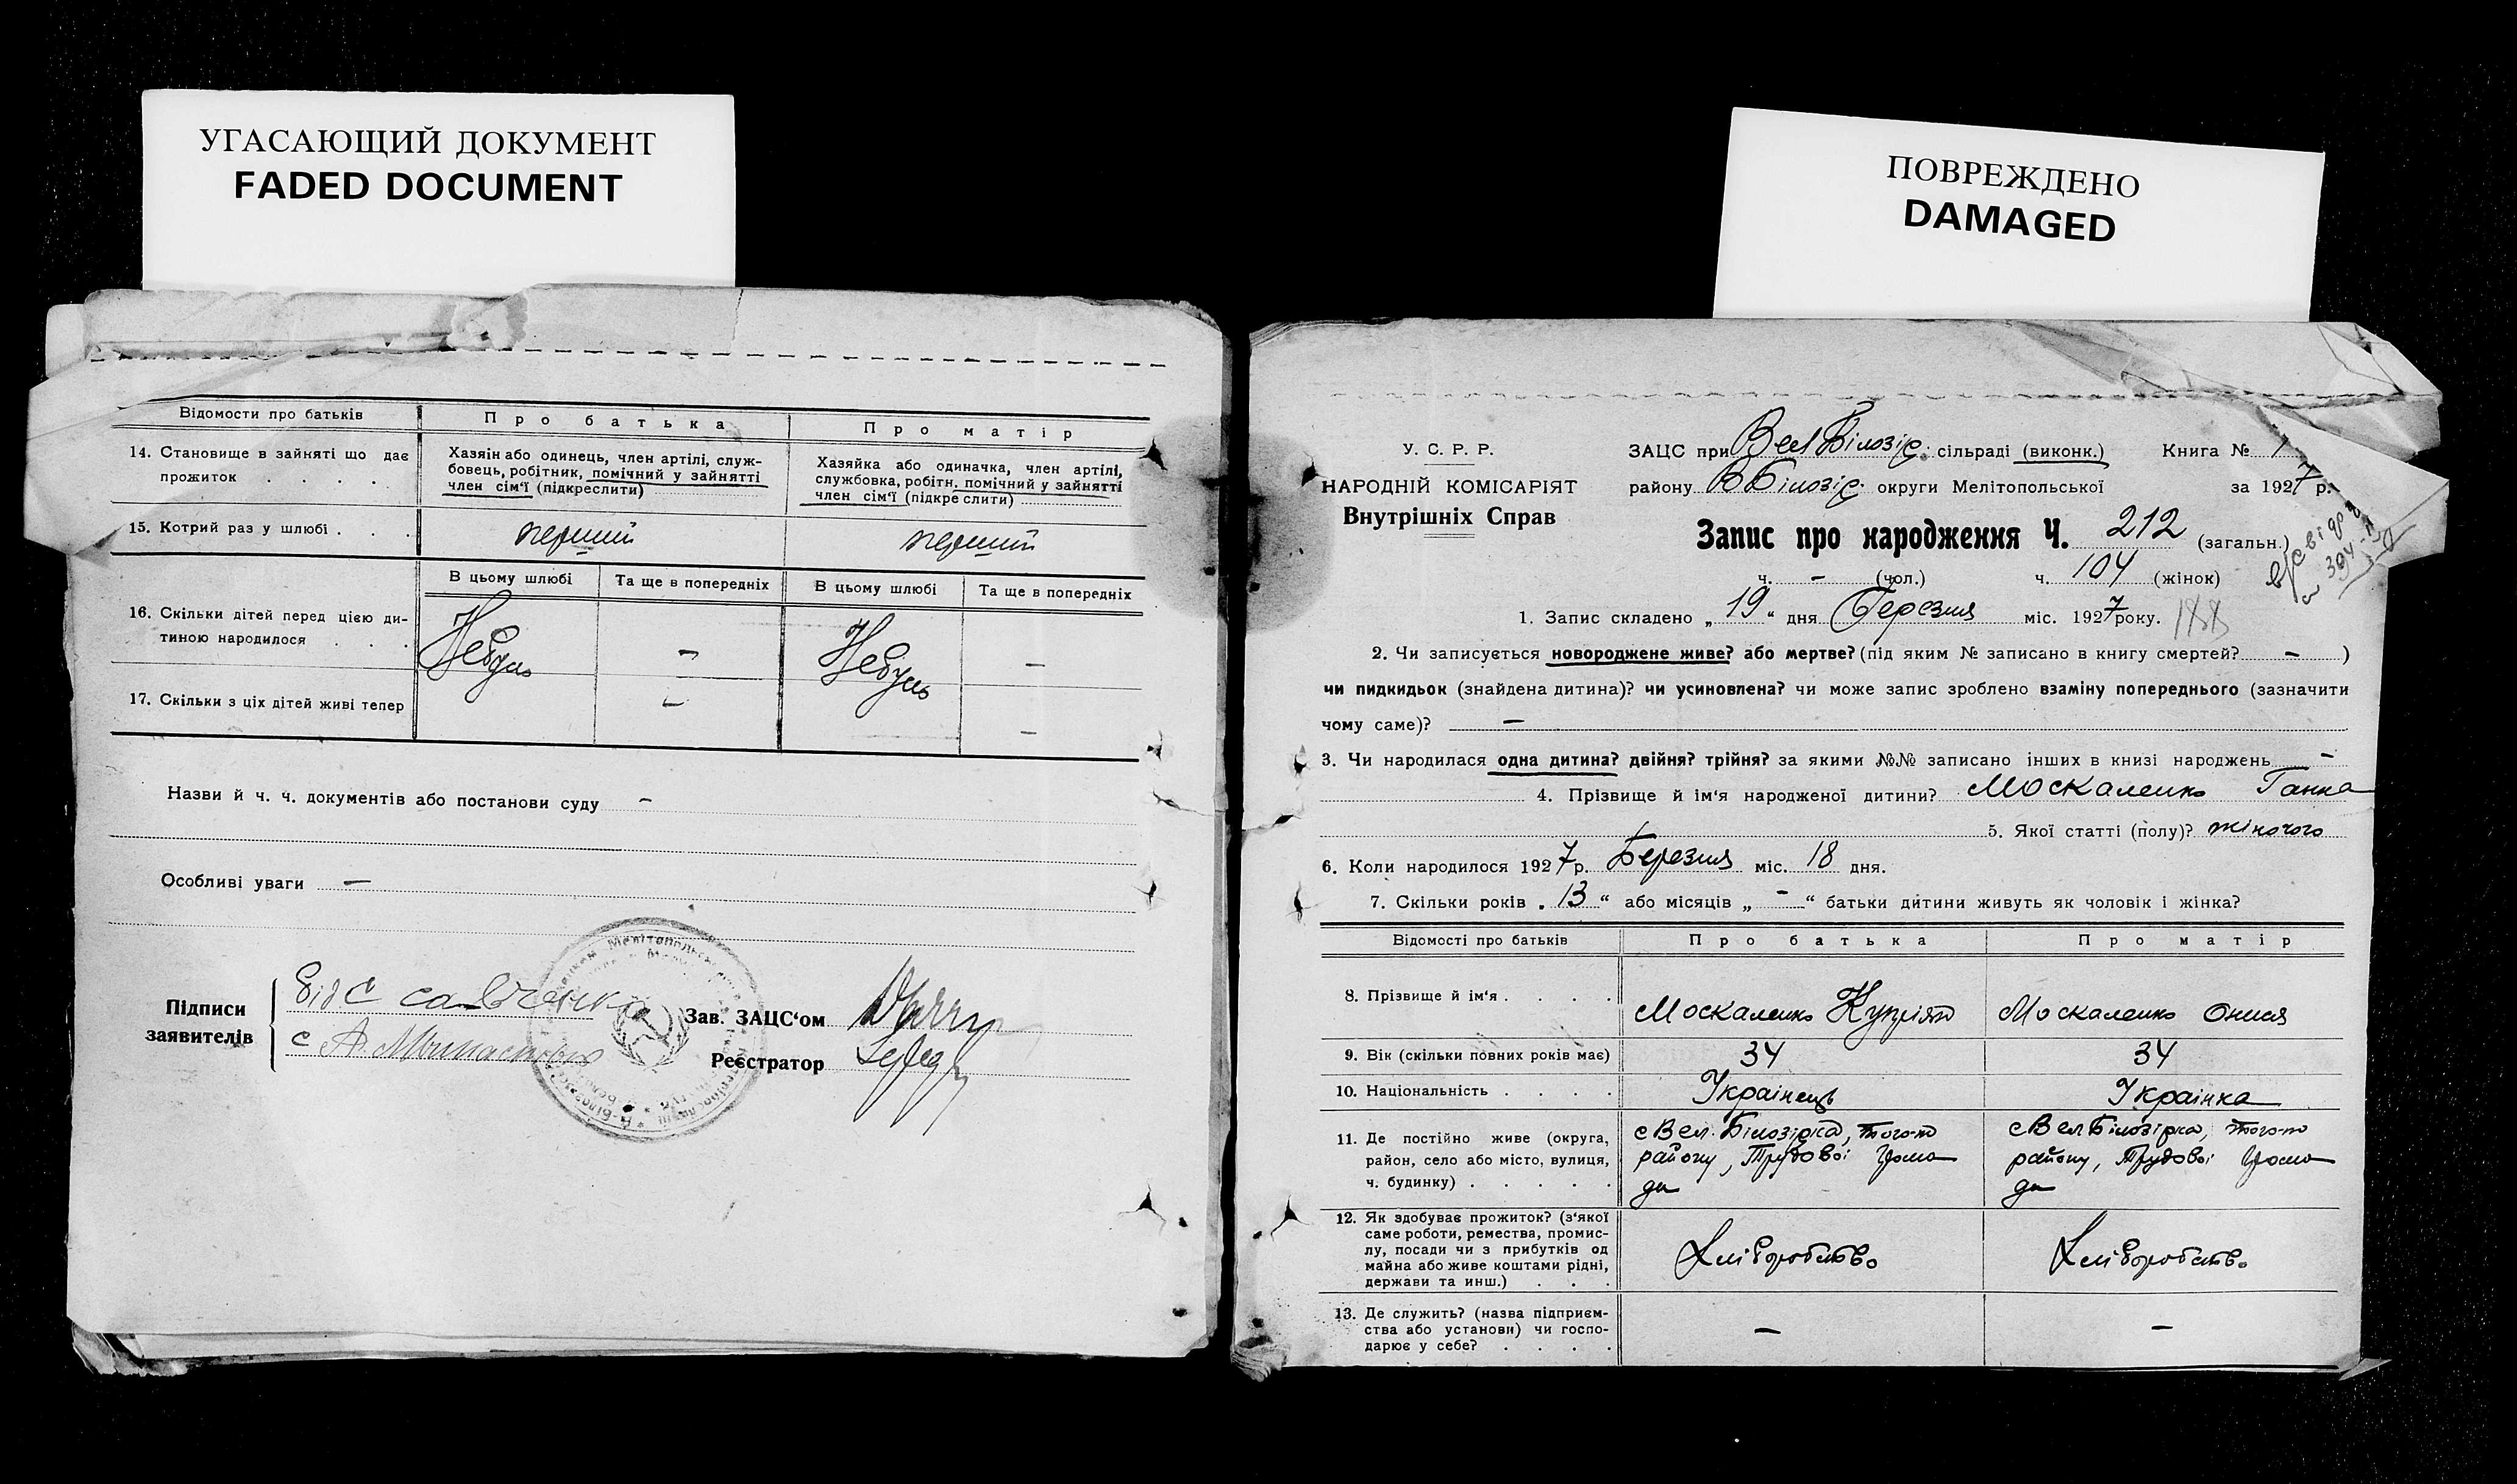 УГАСАЮЩИЙ ДОКУМЕНТ
FADED DOCUMENT
Відомости про батьків
Про батька
Про матір
14. Становище в зайняті що дає
прожиток . . . .
Хазяін або одинець, член артілі, служ-
бовець, робітник, помічний у зайнятті
член сім'ї (підкреслити)
Хазяйка або одиначка, член артілі,
службовка, робітн. помічний у зайнятті
член сім'ї (підкреслити)
15. Котрий раз у шлюбі . . .
перший
перший
В цьому шлюбі
Та ще в попередніх
В цьому шлюбі
Та ще в попередніх
16. Скільки дітей перед цією ди-
тиною народилося . . .
–
–
17. Скільки з ціх дітей живі тепер
–
–
Назви й ч. ч. документів або постанови суду –
Особливі уваги –
Підписи
заявителів
Зав. ЗАЦС'ом
Реєстратор
ПОВРЕЖДЕНО
DAMAGED
У. С. Р. Р.
НАРОДНІЙ КОМІСАРІЯТ
Внутрішніх Справ
ЗАЦС при Вел Білозір. сільраді (виконк.) Книга № 1
району ВБілозір. округи Мелітопольської за 1927 р.
Запис про народження Ч. 212 (загальн.)
ч. – (чол.) ч. 104 (жінок)
1. Запис складено „19“ дня Березня міс. 1927 року. 188
2. Чи записується новороджене живе? або мертве? (під яким № записано в книгу смертей? – )
чи пидкидьок (знайдена дитина)? чи усиновлена? чи може запис зроблено взаміну попереднього (зазначити
чому саме)? –
3. Чи народилася одна дитина? двійня? трійня? за якими №№ записано інших в книзі народжень –
4. Прізвище й ім'я народженої дитини? Москаленко Ганна
5. Якої статті (полу)? жіночого
6. Коли народилося 1927 р. Березня міс. 18 дня.
7. Скільки років „13“ або місяців „–“ батьки дитини живуть як чоловік і жінка?
Відомості про батьків
Про батька
Про матір
8. Прізвище й ім'я . . . .
Москаленко Купріян
Москаленко Онися
9. Вік (скільки повних років має)
34
34
10. Національність . . . .
Украінець
Украінка
11. Де постійно живе (округа,
район, село або місто, вулиця,
ч. будинку) . . . . .
с Вел. Білозірка, того-ж
району, Трудової Грома
ди
с Вел Білозірка, того-ж
району, Трудової Грома
ди
12. Як здобуває прожиток? (з'якої
саме роботи, ремества, промис-
лу, посади чи з прибутків од
майна або живе коштами рідні,
держави та инш.) . . .
Хліборобство
Хліборобство
13. Де служить? (назва підприєм-
ства або установи) чи госпо-
дарює у себе? . . . .
–
–